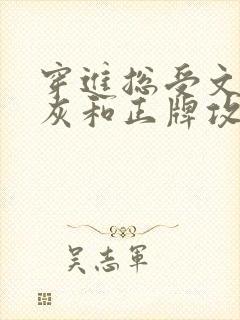 穿进总受文
灰和正牌攻
吴志军